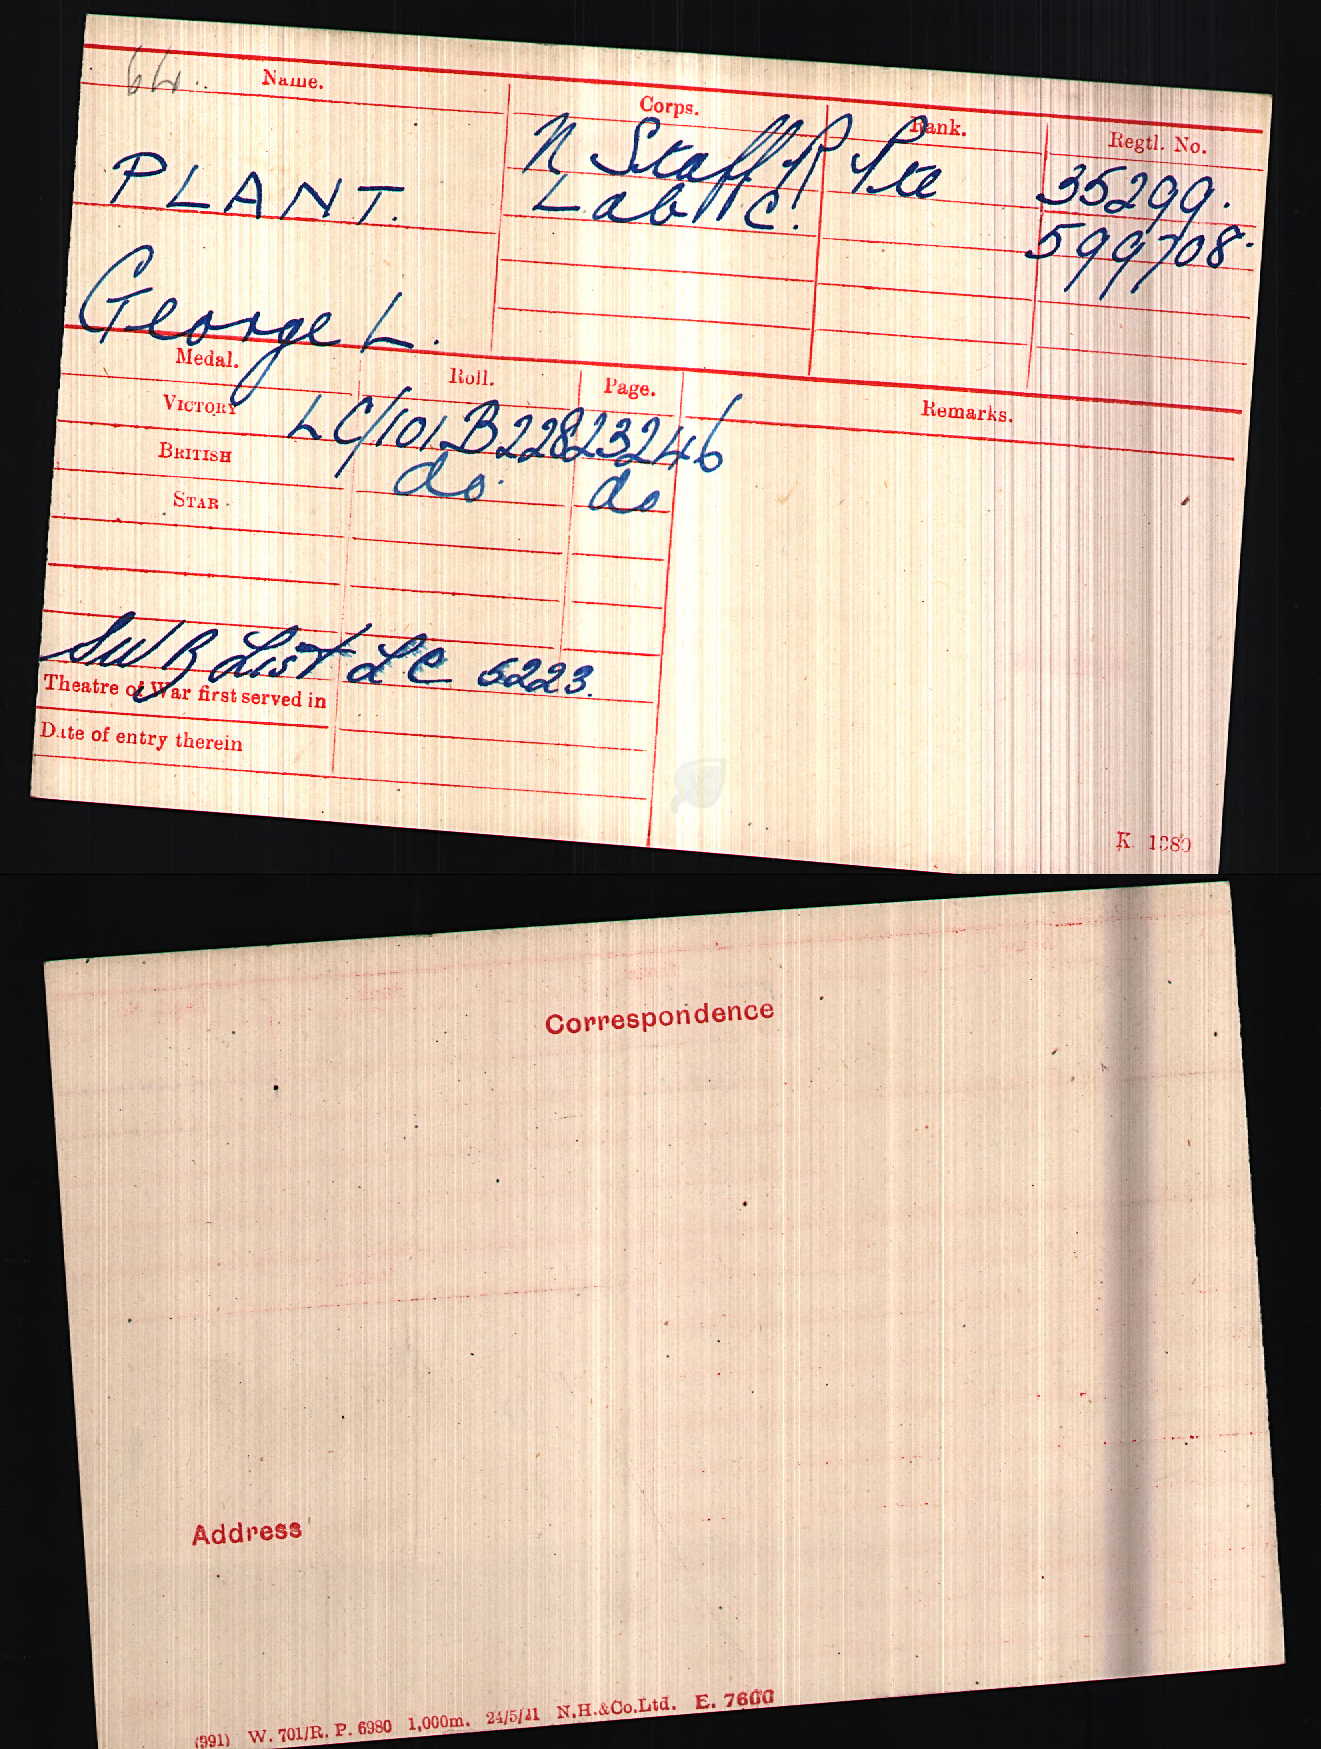 64.
Name.
Corps.
Rank.
Regtl. No.
PLANT.
N Staff R Pte 35299.
Lab C. 599708.
George L.
Medal. Roll. Page. Remarks.
VICTORY LC/101B228 23246
BRITISH do. do
STAR
SWB List LC 5223.
Theatre of War first served in
Date of entry therein
K. 1380
Correspondence
Address
(991) W. 701/R. P. 6980 1,000m. 24/5/21 N.H.&Co.Ltd. E. 7600